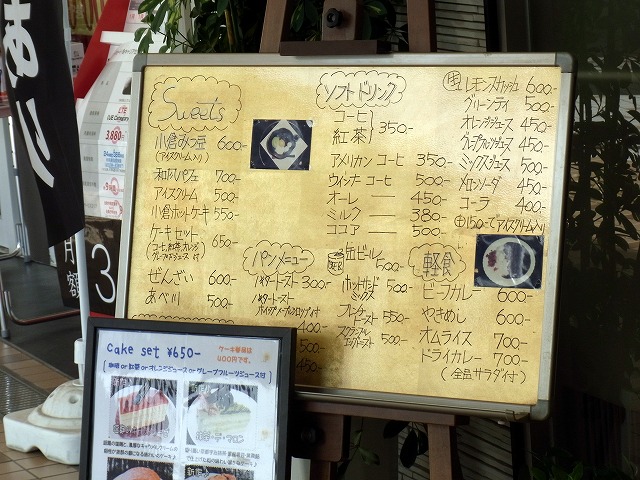 あり
3,880
月額
3
Sweets
小倉みつ豆 600-
(アイスクリーム入り)
和風パフェ 700-
アイスクリーム 500-
小倉ホットケーキ 550-
ケーキセット 650-
コーヒ、紅茶、オレンジ
グレープジュース付
ぜんざい 600-
あべ川 500-
ソフトドリンク
コーヒ
紅茶 350-
アメリカンコーヒ 350-
ウィンナコーヒ 500-
オーレ 450-
ミルク 380-
ココア 500-
レモンスカッシュ 600-
グリーンティ 500-
オレンジジュース 450-
グレープフルーツジュース 450-
ミックスジュース 500-
メロンソーダ 450-
コーラ 400-
(+150-でアイスクリーム入り)
パンメニュー
バタートースト 300-
バタートースト
ホイップメープルシロップ付
400-
450-
缶ビール 500-
ホットサンド
ミックス 500-
フレンチ
トースト 550-
スクランブル
エッグトースト 500-
軽食
ビーフカレー 600-
やきめし 600-
オムライス 700-
ドライカレー 700-
(全品サラダ付)
Cake set ¥650-
ケーキ単品は
400円です。
珈琲 or 紅茶 or オレンジジュース or グレープフルーツジュース付